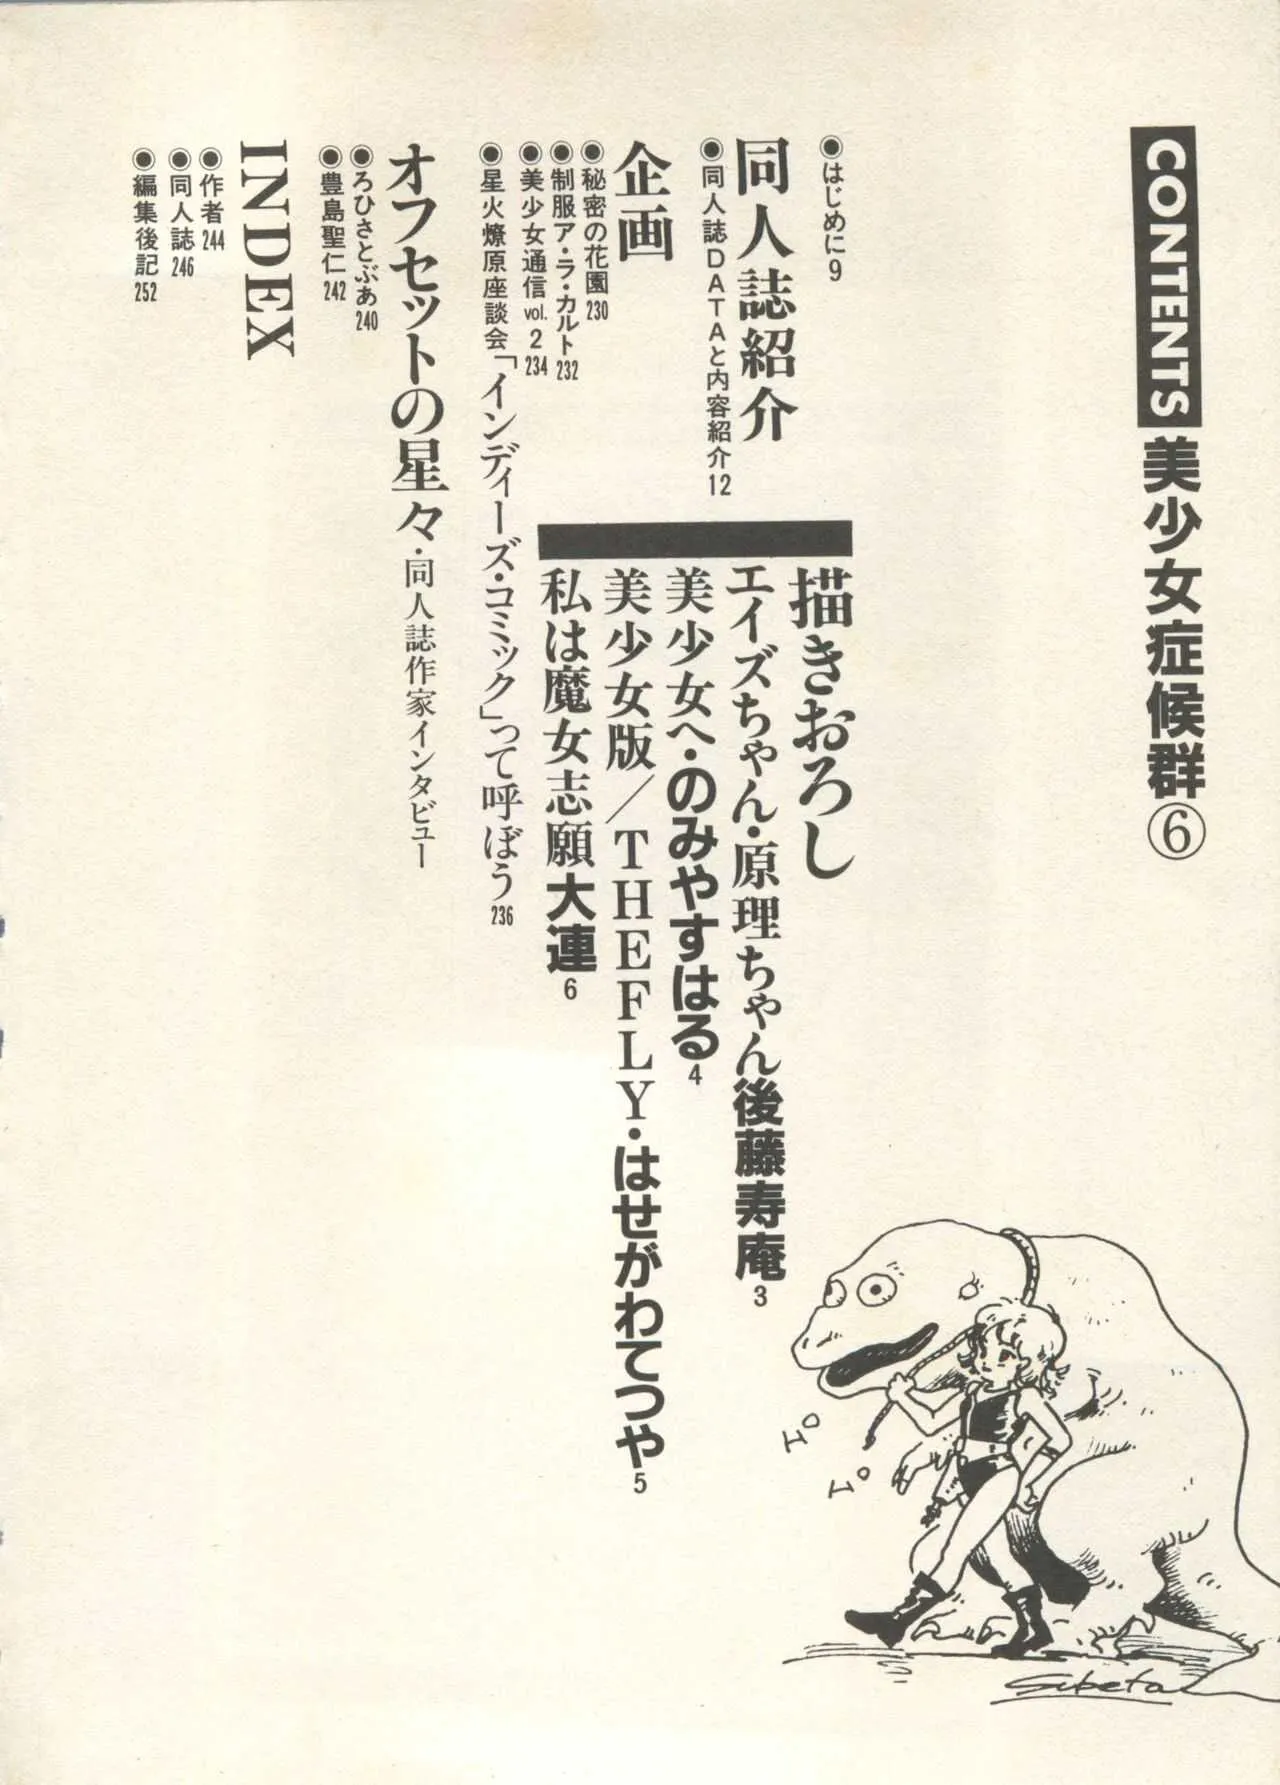 CONTENTS 美少女症候群⑥
●はじめに9
同人誌紹介
●同人誌DATAと内容紹介12
描きおろし
エイズちゃん・原理ちゃん後藤寿庵3
美少女へ・のみやすはる4
美少女版/THEFLY・はせがわてつや5
私は魔女志願大連6
企画
●秘密の花園230
●制服ア・ラ・カルト232
●美少女通信vol.2 234
●星火燎原座談会「インディーズ・コミック」って呼ぼう236
オフセットの星々・同人誌作家インタビュー
●ろひさとぶぁ240
●豊島聖仁242
INDEX
●作者244
●同人誌246
●編集後記252
エo
エo
Subeta